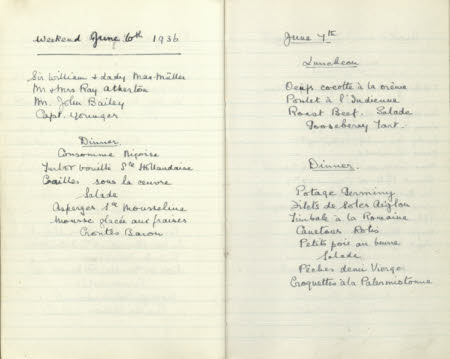 Weekend June 6th 1936
Sir William & Lady Max-Müller
Mr & Mrs Ray Atherton
Mr. John Bailey
Capt. Younger
Dinner
Consommé Niçoise
Turbot bouillé Sce Hollandaise
Cailles sous la
Salade
Asperges Sce Mousseline
Mousse glacée aux fraises
Croutes Baron
June 7th
Luncheon
Oeufs cocotte à la crème
Poulet à l'Indienne
Roast Beef. Salade
Gooseberry Tart.
Dinner.
Potage Germiny
Filets de Soles Aiglon
Timbale à la Romaine
Canetons Rotis
Petits pois au burre
Salade
Pêches demi Vierge
Croquettes à la